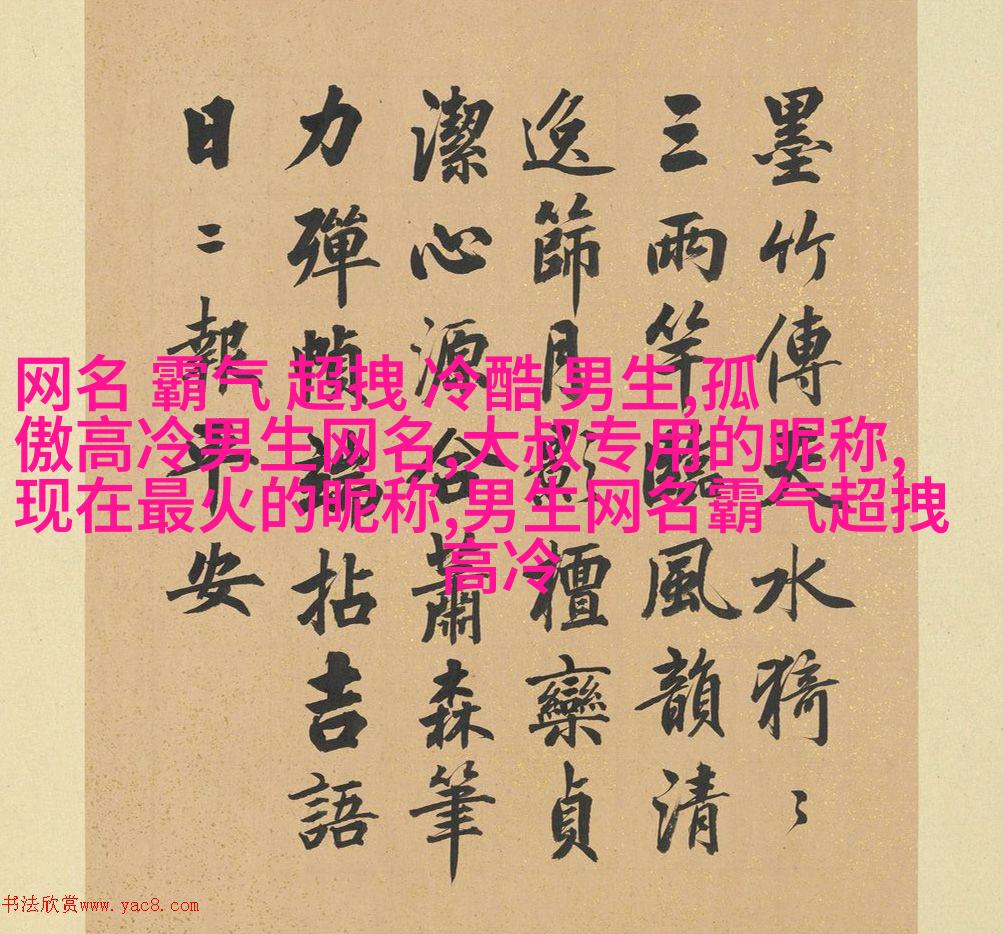 墨竹傳天水猗〻
三兩竿臨風韻清
逸篩月影檀欒貞
潔心源合蕭森筆
力彈幀端拈吉語
日〻報平安
网名 霸气 超拽 冷酷 男生,孤
傲高冷男生网名,大叔专用的昵称,
现在最火的昵称,男生网名霸气超拽
高冷
书法欣赏www.yac8.com